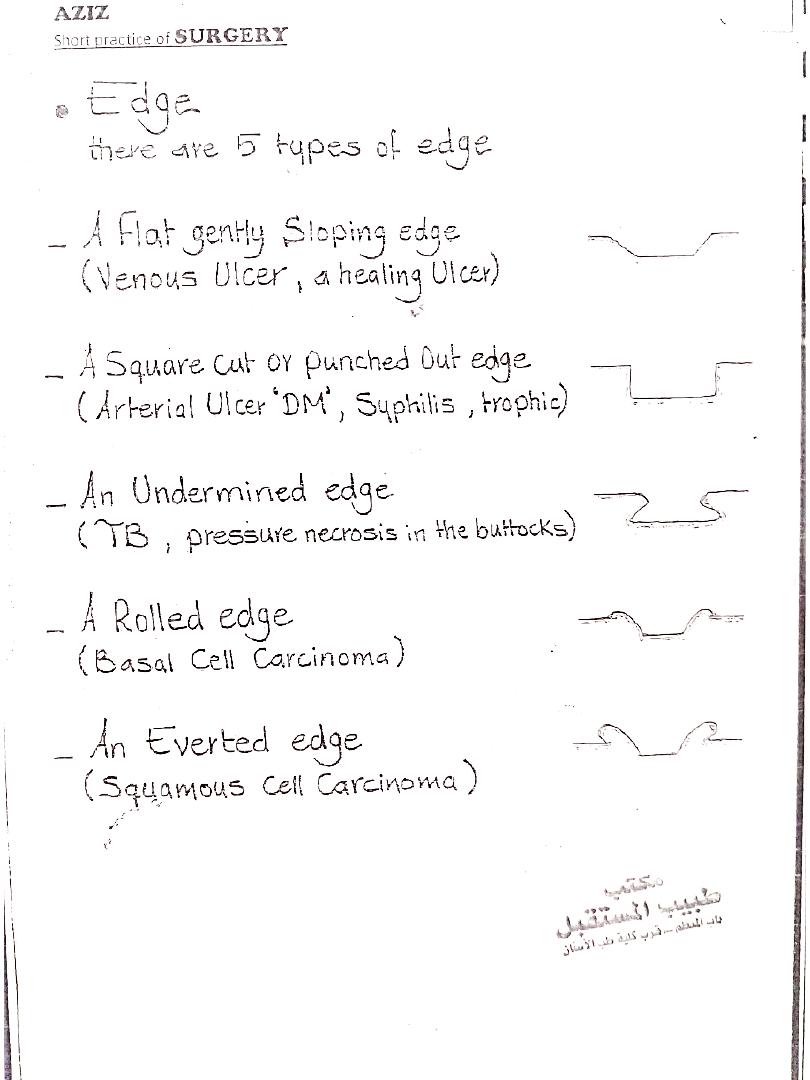 AZIZ
Short practice of SURGERY
• Edge
there are 5 types of edge
– A Flat gently Sloping edge
(Venous Ulcer, a healing Ulcer)
– A Square Cut or punched Out edge
(Arterial Ulcer 'DM', Syphilis, trophic)
– An Undermined edge
(TB, pressure necrosis in the buttocks)
– A Rolled edge
(Basal Cell Carcinoma)
– An Everted edge
(Squamous Cell Carcinoma)
مكتب
طبيب المستقبل
باب المعظم - قرب كلية طب الأسنان